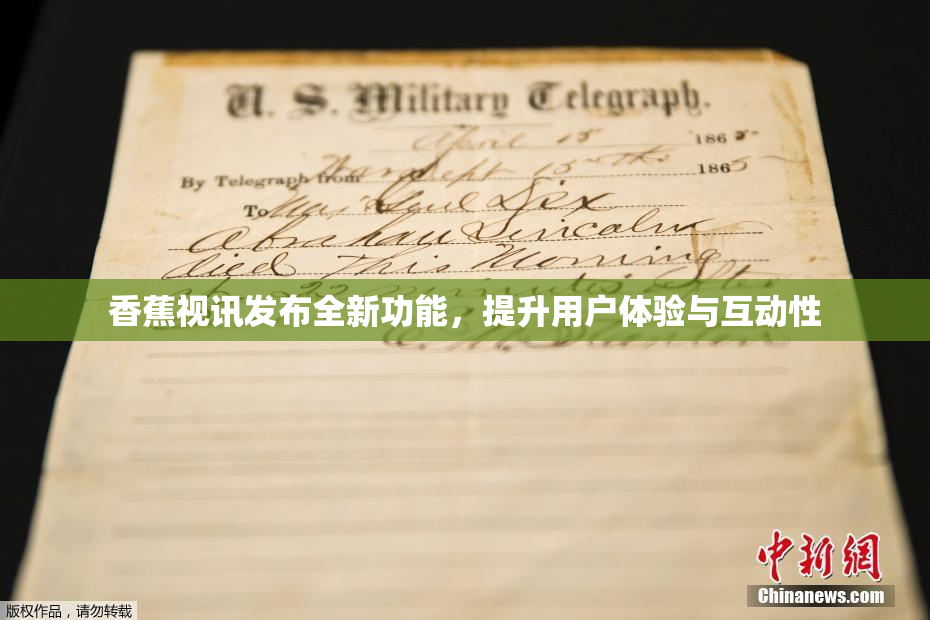 U. S. Military Telegraph.
April 15 1865
By Telegraph from Wash Sept 15th 1865
To Maj Genl Dix
Abraham Lincoln
died This Morning
22 minutes after
香蕉视讯发布全新功能，提升用户体验与互动性
E. M. Stanton
中新网
Chinanews.com
版权作品，请勿转载